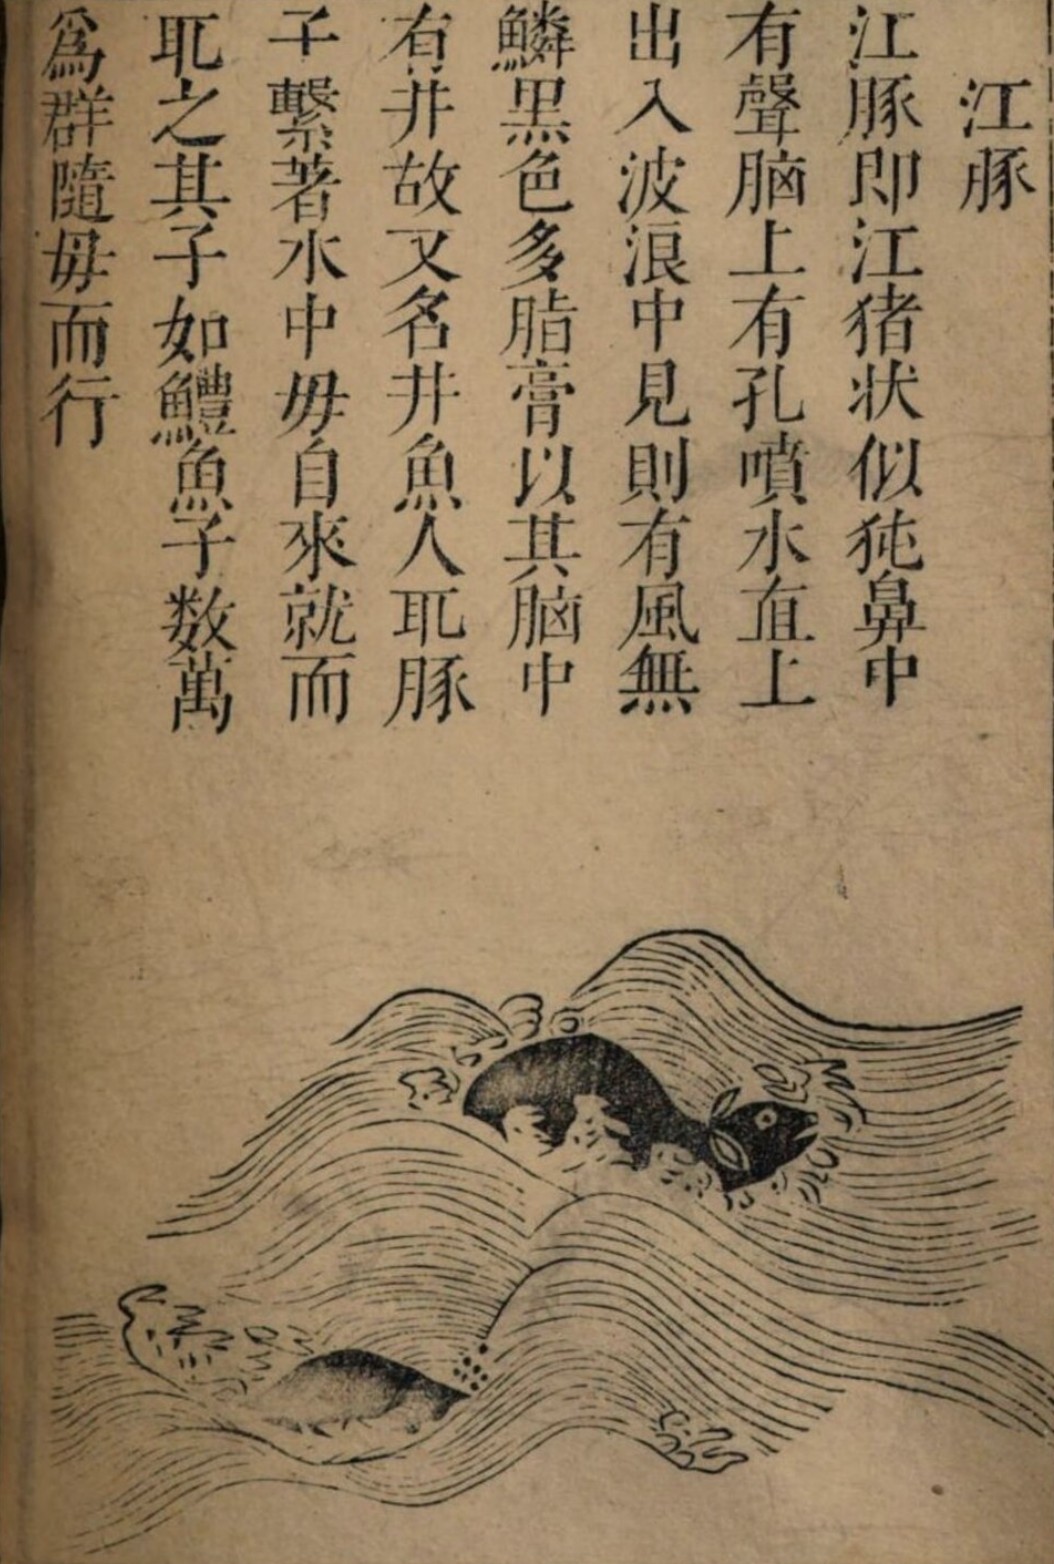 江豚
江豚即江猪状似㹠鼻中
有聲脑上有孔噴水直上
出入波浪中見則有風無
鱗黒色多脂膏以其脑中
有井故又名井魚人取豚
子繫著水中毋自來就而
取之其子如鱧魚子数萬
爲群隨毋而行